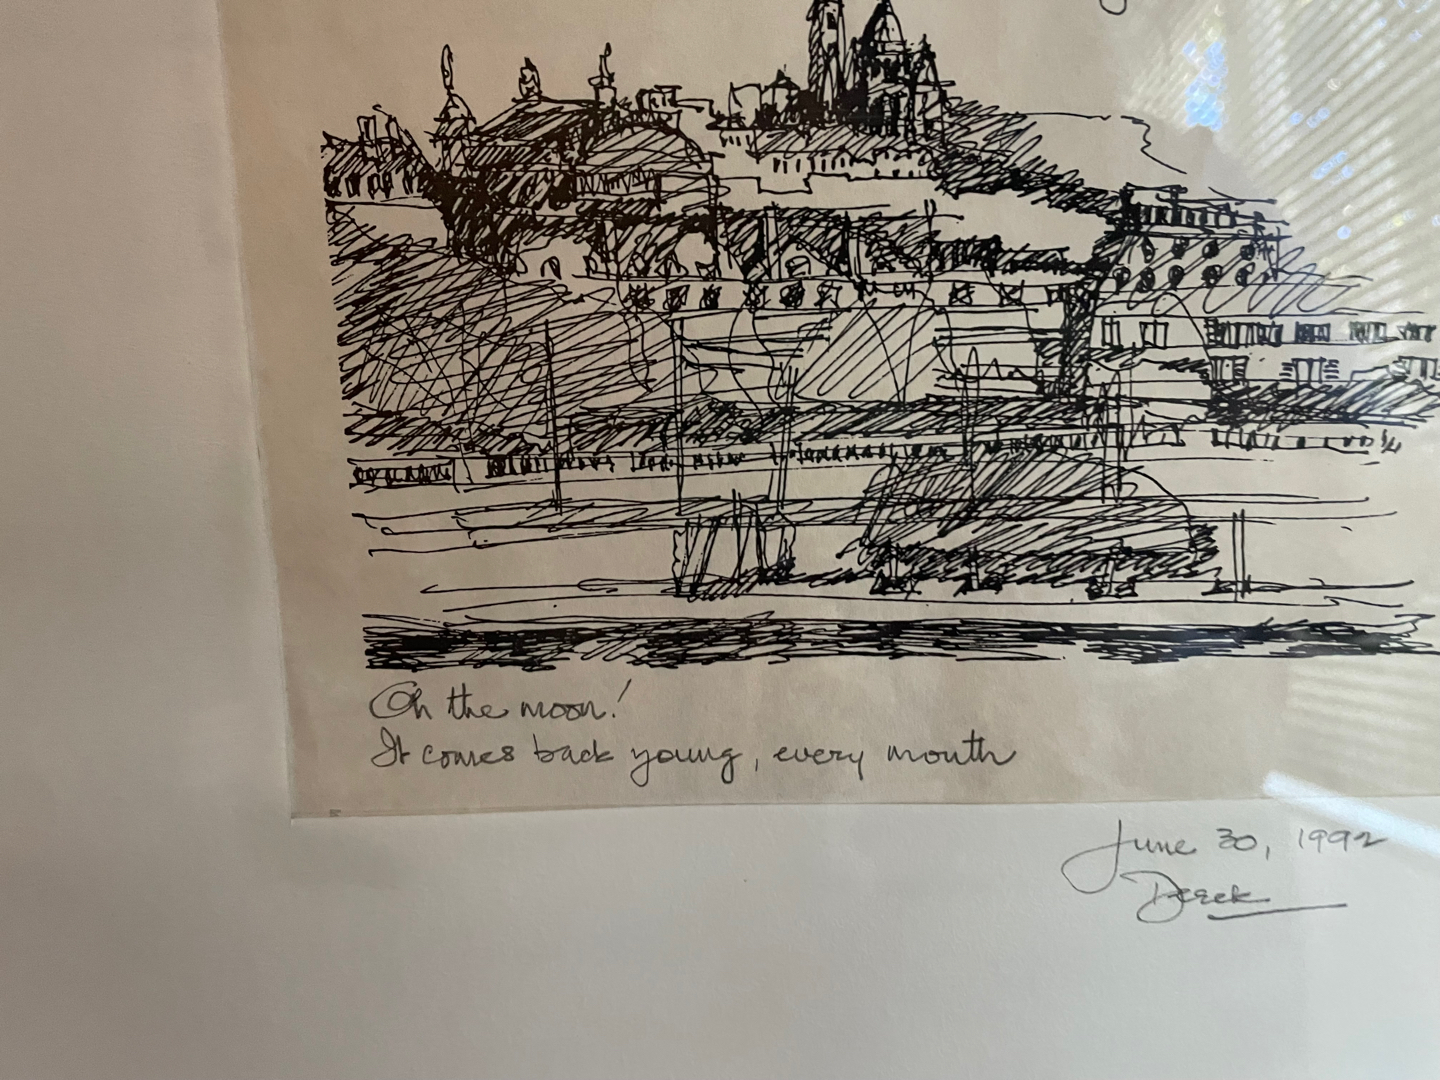 Oh the moon!
It comes back young, every month
June 30, 1992
Derek